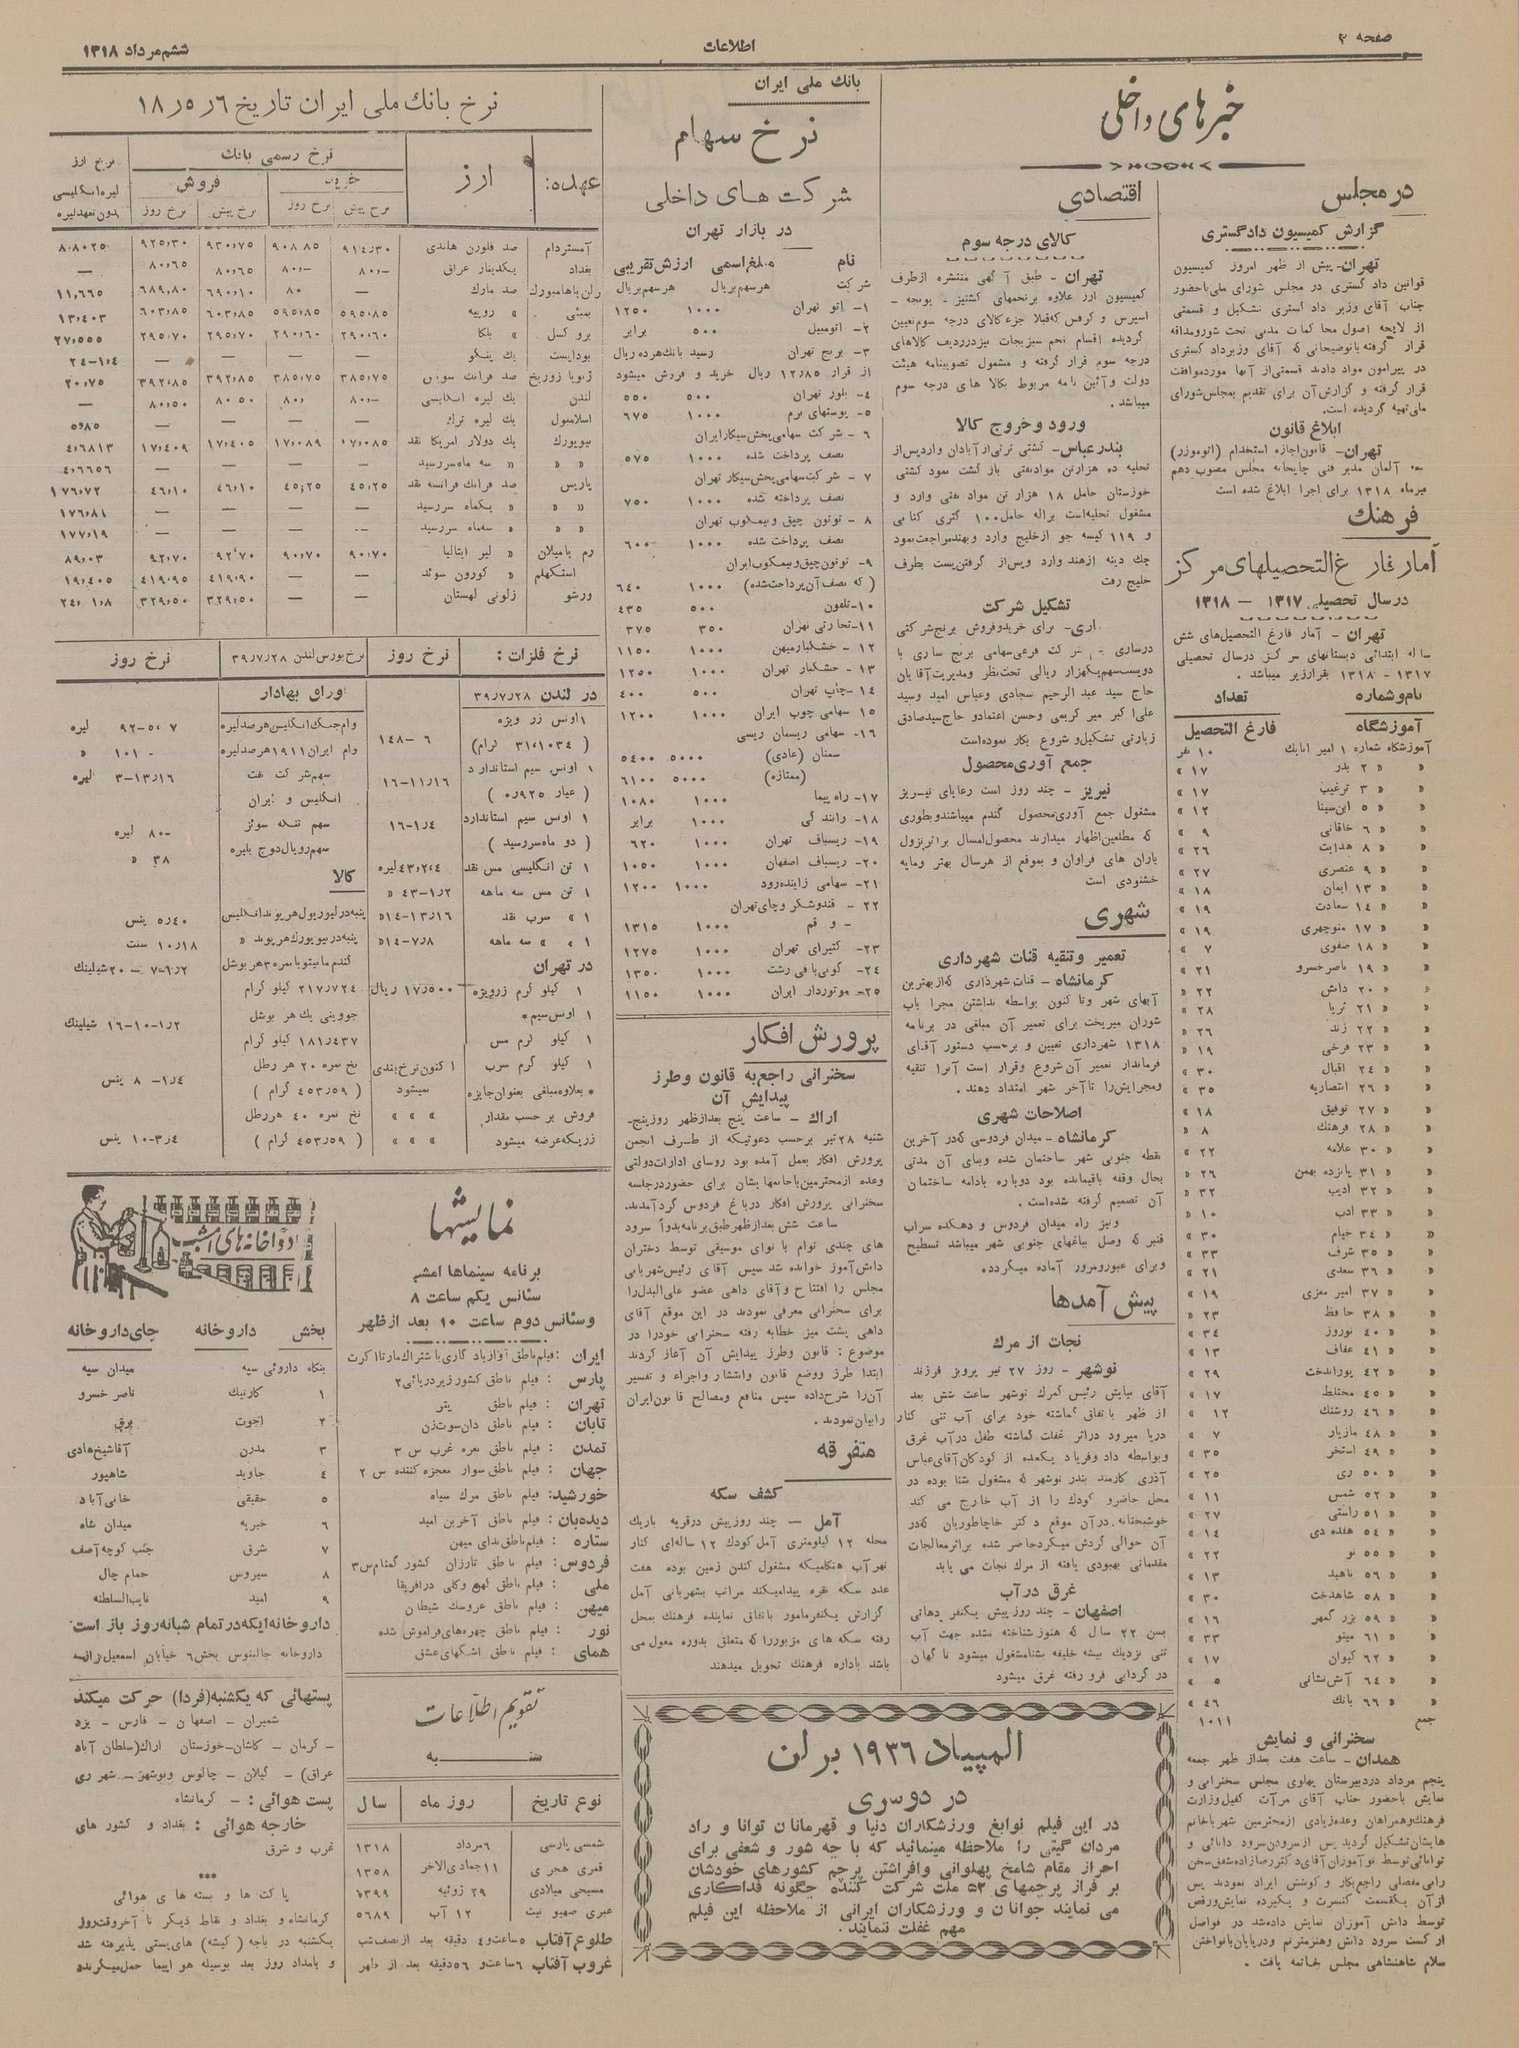 صفحه ۲
اطلاعات
ششم مرداد ۱۳۱۸
خبرهای داخلی
در مجلس
گزارش کمیسیون دادگستری
تهران- پیش از ظهر امروز کمیسیون
قوانین دادگستری در مجلس شورای ملی باحضور
جناب آقای وزیر دادگستری تشکیل و قسمتی
از لایحه اصول محاکمات مدنی تحت شورومداقه
قرار گرفته باتوضیحاتی که آقای وزیردادگستری
در پیرامون مواد دادند قسمتی از آنها موردموافقت
قرار گرفته و گزارش آن برای تقدیم بمجلس‌شورای
ملی تهیه گردیده است.
ابلاغ قانون
تهران- قانون اجازه استخدام (اتوموزر)
آلمان مدیر فنی چاپخانه مجلس مصوب دهم
تیرماه ۱۳۱۸ برای اجرا ابلاغ شده است
فرهنگ
آمار فارغ‌التحصیلهای مرکز
در سال تحصیلی ۱۳۱۷ – ۱۳۱۸
تهران – آمار فارغ التحصیل‌های شش
ساله ابتدائی دبستانهای مرکز درسال تحصیلی
۱۳۱۷ – ۱۳۱۸ بقرارزیر میباشد .
نام و شماره تعداد
آموزشگاه فارغ التحصیل
آموزشگاه شماره ۱ امیر اتابک ۱۰ نفر
» » ۲ بدر ۱۷ »
» » ۳ ترغیب ۱۷ »
» » ۵ ابن‌سینا ۱۲ »
» » ۶ خاقانی ۹ »
» » ۸ هدایت ۲۶ »
» » ۹ عنصری ۲۷ »
» » ۱۳ ایمان ۱۸ »
» » ۱۴ سعادت ۱۹ »
» » ۱۷ منوچهری ۱۹ »
» » ۱۸ صفوی ۷ »
» » ۱۹ ناصرخسرو ۲۱ »
» » ۲۰ دانش ۲۲ »
» » ۲۱ ثریا ۲۸ »
» » ۲۲ زند ۲۶ »
» » ۲۳ فرخی ۱۹ »
» » ۲۴ اقبال ۳۰ »
» » ۲۶ انتصاریه ۳۵ »
» » ۲۷ توفیق ۱۸ »
» » ۲۸ فرهنگ ۸ »
» » ۳۰ علامه ۲۲ »
» » ۳۱ پانزده بهمن ۲۶ »
» » ۳۲ ادیب ۳۲ »
» » ۳۳ ادب ۱۰ »
» » ۳۴ خیام ۳۰ »
» » ۳۵ شرف ۳۳ »
» » ۳۶ سعدی ۲۱ »
» » ۳۷ امیر معزی ۱۹ »
» » ۳۸ حافظ ۲۳ »
» » ۴۰ نوروز ۳۴ »
» » ۴۱ عفاف ۱۳ »
» » ۴۲ پوراندخت ۲۹ »
» » ۴۵ مختلط ۱۷ »
» » ۴۶ روشنک ۱۲ »
» » ۴۸ مازیار ۷ »
» » ۴۹ استخر ۳۵ »
» » ۵۰ ری ۲۵ »
» » ۵۲ شمس ۱۱ »
» » ۵۱ راستی ۲۷ »
» » ۵۴ هفده دی ۱۴ »
» » ۵۵ نو ۲۲ »
» » ۵۶ ناهید ۱۳ »
» » ۵۸ شاهدخت ۳۰ »
» » ۵۹ بزرگمهر ۱۶ »
» » ۶۱ مینو ۳۳ »
» » ۶۲ کیوان ۱۷ »
» » ۶۴ آتش‌نشانی ۵ »
» » ۶۶ بانک ۴۶ »
جمع ۱۰۱۱
سخنرانی و نمایش
همدان – ساعت هفت بعداز ظهر جمعه
پنجم مرداد دردبیرستان پهلوی مجلس سخنرانی و
نمایش باحضور جناب آقای مرآت کفیل وزارت
فرهنگ وهمراهان وعده‌زیادی ازمحترمین شهر باخانم
هایشان تشکیل گردید پس از سرودن سرود دانائی و
توانائی توسط نوآموزان آقای دکتررضازاده شفق سخن
رانی مفصلی راجع بکار و کوشش ایراد نمودند پس
از آن یکقسمت کنسرت و یک‌پرده نمایش‌ورقص
توسط دانش آموزان نمایش داده‌شد در فواصل
ارکست سرود دانش وهنرمترنم ودرپایان بانواختن
سلام شاهنشاهی مجلس خاتمه یافت .
اقتصادی
کالای درجه سوم
تهران – طبق آگهی منتشره از طرف
کمیسیون ارز علاوه برتخمهای گشنیز – یونجه –
اسپرس و کرفس که‌قبلا جزء کالای درجه سوم تعیین
گردیده اقسام تخم سبزیجات نیزدرردیف کالاهای
درجه سوم قرار گرفته و مشمول تصویبنامه هیئت
دولت وآئین نامه مربوط بکالا های درجه سوم
میباشد .
ورود و خروج کالا
بندرعباس- کشتی نرتی از آبادان واردپس از
تخلیه ده هزارتن موادنفتی باز گشت نمود کشتی
خوزستان حامل ۱۸ هزار تن مواد نفتی وارد و
مشغول تخلیه‌است براله حامل ۱۰۰ گتری کتانی
و ۱۱۹ کیسه جو از خلیج وارد وبهندمراجعت‌نمود
چک دینه ازهند وارد وپس از گرفتن‌پست بطرف
خلیج رفت
تشکیل شرکت
ساری- برای خریدوفروش برنج شرکتی
درساری شرکت فرعی سهامی برنج ساری با
دویست سهم یکهزار ریالی تحت‌نظر ومدیریت آقایان
حاج سید عبدالرحیم سجادی وعباس امید وسید
علی اکبر میر کریمی وحسن اعتمادو حاج سیدصادق
زیارتی تشکیل و شروع بکار نموده‌است
جمع آوری محصول
نیریز – چند روز است رعایای نیریز
مشغول جمع آوری محصول گندم میباشندوبطوری
که مطلعین اظهار میدارند محصول‌امسال براثرنزول
باران های فراوان و بموقع از هرسال بهتر ومایه
خشنودی است
شهری
تعمیر وتنقیه قنات شهرداری
کرمانشاه- قنات شهرداری که‌از بهترین
آبهای شهر وتا کنون بواسطه نداشتن مجرا بآب
شوران میریخت برای تعمیر آن مبلغی در برنامه
۱۳۱۸ شهرداری تعیین و برحسب دستور آقای
فرماندار تعمیر آن شروع وقرار است آنرا تنقیه
ومجرایش‌را تا آخر شهر امتداد دهند.
اصلاحات شهری
کرمانشاه – میدان فردوسی که‌در آخرین
نقطه جنوبی شهر ساختمان شده وبنای آن مدتی
بحال وقفه باقیمانده بود دوباره بادامه ساختمان
آن تصمیم گرفته شده‌است.
ونیز راه میدان فردوس و دهکده سراب
قنبر که وصل بباغهای جنوبی شهر میباشد تسطیح
وبرای عبورومرور آماده میگردد.
پیش آمدها
نجات از مرگ
نوشهر – روز ۲۷ تیر پرویز فرزند
آقای نیایش رئیس گمرک نوشهر ساعت شش بعد
از ظهر باتفاق گماشته خود برای آب تنی کنار
دریا میرود دراثر غفلت گماشته طفل درآب غرق
وبواسطه داد وفریاد یکعده از کودکان آقای‌عباس
آذری کارمند بندر نوشهر که مشغول شنا بوده در
محل حاضرو کودک را از آب خارج می کند
خوشبختانه درآن موقع دکتر خاچاطوریان که‌در
آن حوالی گردش میکردحاضر شده براثرمعالجات
مقدماتی بهبودی یافته از مرگ نجات می یابد
غرق در آب
اصفهان – چند روز پیش یکنفر دهاتی
بسن ۲۲ سال که هنوز شناخته نشده جهت آب
تنی نزدیک بیشه خلیفه بشنامشغول میشود ناگهان
در گردابی فرو رفته غرق میشود
بانک ملی ایران
نرخ سهام
شرکت های داخلی
در بازار تهران
نام مبلغ‌اسمی ارزش‌تقریبی
شرکت هرسهم‌بریال هرسهم‌بریال
۱- اتو تهران ۱۰۰۰ ۱۲۵۰
۲- اتومبیل ۵۰۰ برابر
۳- برنج تهران رسید بانک‌هرده‌ریال
از قرار ۱۲٫۸۵ ریال خرید و فروش میشود
۴- بلور تهران ۵۰۰ ۵۵۰
۵- پوستهای نرم ۱۰۰۰ ۶۷۵
۶ – شرکت سهامی پخش‌سیگارایران
نصف پرداخت شده ۱۰۰۰ ۵۷۵
۷ – شرکت‌سهامی‌پخش‌سیگار تهران
نصف پرداخته نشده ۱۰۰۰ ۷۵۰
۸ – توتون چپق وتنباکوب تهران
نصف پرداخت شده ۱۰۰۰ ۶۰۰
۹– توتون‌چپق‌وتنباکوب‌ایران
(که نصف آن پرداخت‌شده) ۱۰۰۰ ۶۴۰
۱۰- تلفون ۵۰۰ ۴۳۵
۱۱- تجارتی تهران ۳۵۰ ۳۷۵
۱۲ – خشکبارمیهن ۱۰۰۰ ۱۱۵۰
۱۳ – خشکبار تهران ۱۰۰۰ ۱۲۵۰
۱۴ – چاپ تهران ۵۰۰ ۴۰۰
۱۵ – سهامی چوب ایران ۱۰۰۰ ۱۲۰۰
۱۶- سهامی ریسمان ریسی
سمنان (عادی) ۵۰۰۰ ۵۴۰۰
(ممتازه) ۵۰۰۰ ۶۱۰۰
۱۷- راه پیما ۱۰۰۰ ۱۰۸۰
۱۸- رانندگی ۱۰۰۰ برابر
۱۹- ریسباف تهران ۱۰۰۰ ۶۲۰
۲۰- ریسباف اصفهان ۱۰۰۰ ۱۰۵۰
۲۱- سهامی زاینده‌رود ۱۰۰۰ ۱۲۰۰
۲۲ – قندوشکر وچای‌تهران
– و قم ۱۰۰۰ ۱۳۱۵
۲۳- کتیرای تهران ۱۰۰۰ ۱۲۷۵
۲۴- گونی‌بافی رشت ۱۰۰۰ ۱۳۵۰
۲۵- موتوردار ایران ۱۰۰۰ ۱۱۵۰
پرورش افکار
سخنرانی راجع‌به قانون وطرز
پیدایش آن
اراک – ساعت پنج بعدازظهر روزپنج-
شنبه ۲۸ تیر برحسب دعوتیکه از طرف انجمن
پرورش افکار بعمل آمده بود روسای ادارات‌دولتی
وعده ازمحترمین باخانمهایشان برای حضوردرجلسه
سخنرانی پرورش افکار درباغ فردوس گردآمدند.
ساعت شش بعدازظهرطبق برنامه بدوآ سرود
های چندی توأم با نوای موسیقی توسط دختران
دانش‌آموز خوانده شد سپس آقای رئیس شهربانی
مجلس را افتتاح و آقای داهی عضو علی‌البدل‌را
برای سخنرانی معرفی نمودند در این موقع آقای
داهی پشت میز خطابه رفته سخنرانی خودرا در
موضوع : قانون وطرز پیدایش آن آغاز کردند
ابتدا طرز ووضع قانون وانتشار واجراء و تفسیر
آن‌را شرح‌داده سپس منافع ومصالح قانون‌ایران
رابیان نمودند .
متفرقه
کشف سکه
آمل – چند روزپیش درقریه باریک
محله ۱۲ کیلومتری آمل کودک ۱۲ ساله‌ای کنار
نهرآب هنگامیکه مشغول کندن زمین بوده هفت
عدد سکه نقره پیدامیکند مراتب بشهربانی آمل
گزارش یکنفرمامور باتفاق نماینده فرهنگ بمحل
رفته سکه های مزبوررا که متعلق بدوره مغول می
باشد باداره فرهنگ تحویل میدهند
المپیاد ۱۹۳۶ برلن
در دوسری
در این فیلم نوابغ ورزشکاران دنیا و قهرمانان توانا و راد
مردان گیتی را ملاحظه مینمائید که با چه شور و شعفی برای
احراز مقام شامخ پهلوانی وافراشتن پرچم کشورهای خودشان
بر فراز پرچمهای ۵۳ ملت شرکت کننده چگونه فداکاری
می نمایند جوانان و ورزشکاران ایرانی از ملاحظه این فیلم
مهم غفلت ننمایند .
نرخ بانک ملی ایران تاریخ ۶ر۵ر۱۸
عهده: ارز نرخ رسمی بانک نرخ ارز
خرید فروش لیره‌انگلیسی
نرخ پیش نرخ روز نرخ پیش نرخ روز بدون‌تعهدلیره
آمستردام صد فلورن هلندی ۹۱۴٫۳۰ ۹۰۸٫۸۵ ۹۳۰٫۷۵ ۹۲۵٫۳۰ ۸٫۸۰۲۵
بغداد یکدینار عراق ۸۰٫- ۸۰٫- ۸۰٫۶۵ ۸۰٫۶۵ —
برلن یاهامبورک صد مارک — ۸۰ ۶۹۰٫۱۰ ۶۸۹٫۸۰ ۱۱٫۶۶۵
بمبئی » روپیه ۵۹۵٫۸۵ ۵۹۵٫۸۵ ۶۰۳٫۸۵ ۶۰۳٫۸۵ ۱۳٫۴۰۳
بروکسل » بلکا ۲۹۰٫۶۰ ۲۹۰٫۶۰ ۲۹۵٫۷۰ ۲۹۵٫۷۰ ۲۷٫۵۵۵
بوداپست یک پنکو — — — — ۲۴-۱ر۴
ژنویا زوریخ صد فرانک سویس ۳۸۵٫۷۵ ۳۸۵٫۷۵ ۳۹۲٫۸۵ ۳۹۲٫۸۵ ۲۰٫۷۵
لندن یک لیره انگلیسی ۸۰٫- ۸۰٫- ۸۰٫۵۰ ۸۰٫۵۰ —
اسلامبول یک لیره ترک — — — — ۵٫۸۵
نیویورک یک دولار امریکا نقد ۱۷٫۰۸۵ ۱۷٫۰۸۹ ۱۷٫۴۰۵ ۱۷٫۴۰۹ ۴٫۶۸۱۳
» » » سه ماه سررسید — — — — ۴٫۶۶۵۶
پاریس صد فرانک فرانسه نقد ۴۵٫۲۵ ۴۵٫۲۵ ۴۶٫۱۰ ۴۶٫۱۰ ۱۷۶٫۷۲
» » » یکماه سررسید — — — — ۱۷۶٫۸۱
» » » سه‌ماه سررسید — — — — ۱۷۷٫۱۹
رم یامیلان » لیر ایتالیا ۹۰٫۷۰ ۹۰٫۷۰ ۹۲٫۷۰ ۹۲٫۷۰ ۸۹٫۰۳
استکهلم » کورون سوئد — — ۴۱۹٫۹۰ ۴۱۹٫۹۵ ۱۹٫۴۰۵
ورشو زلوتی لهستان — — ۳۲۹٫۵۰ ۳۲۹٫۵۰ ۲۴٫۱ر۸
نرخ فلزات : نرخ روز نرخ بورس لندن ۳۹٫۷٫۲۸ نرخ روز
در لندن ۳۹٫۷٫۲۸
۱ اونس زر ویژه
( ۳۱٫۱۰۳۴ گرام) ۱۴۸-۶
۱ اونس سیم استاندارد ۱۶-۱۱٫۱۶
( عیار ۰٫۹۲۵ )
۱ اونس سیم استاندارد ۱۶-۱ر۴
( دو ماه سررسید )
۱ تن انگلیسی مس نقد ۴۳٫۲٫۴لیره
۱ تن مس سه ماهه ۴۳-۱ر۲ »
۱ » سرب نقد ۱۴-۱۳٫۱۶»
۱ » » سه ماهه ۱۴-۷٫۸»
در تهران
۱ کیلو گرم زرویژه ۱۷٫۵۰۰ ریال
۱ اونس‌سیم*
۱ کیلو گرم مس
۱ کیلو گرم سرب اکنون نرخ‌بندی
* بعلاوه مبلغی بعنوان‌جایزه نمیشود
فروش برحسب مقدار » » »
زریکه‌عرضه میشود » » »
اوراق بهادار
وام‌جنک‌انگلیس‌هرصدلیره ۹۲-۵٫۷ لیره
وام ایران ۱۹۱۱ هرصدلیره ۱۰۱ - »
سهم‌شرکت نفت ۳-۱۳٫۱۶ لیره
انگلیس و ایران
سهم تنگه سوئز ۸۰- لیره
سهم‌رویال‌دوچ بلیره ۳۸ »
کالا
پنبه‌درلیورپول‌هرپوندانگلیس ۵٫۴۰ پنس
پنبه‌درنیویورک‌هرپوند » ۱۰٫۱۸ سنت
گندم‌مانیتوبانمره۳هربوشل ۲۰-۷-۱ر۲ شیلینک
۲۱۷٫۷۲۴ کیلو گرام
جووینی پک هر بوشل ۱۶-۱۰-۱ر۲ شیلینک
۱۸۱٫۴۳۷ کیلو گرام
نخ نمره ۲۰ هر رطل ۸ -۱ر۴ پنس
( ۴۵۳٫۵۹ گرام )
نخ نمره ۴۰ هررطل
( ۴۵۳٫۵۹ گرام ) ۱۰-۳ر۴ پنس
نمایشها
برنامه سینماها امشب
سئانس یکم ساعت ۸
وسئانس دوم ساعت ۱۰ بعد ازظهر
ایران : فیلم ناطق آوازیاد کاری باشتراک مارتااگرت
پارس : فیلم ناطق کشورزیردریائی۲
تهران : فیلم ناطق پتر
تابان : فیلم ناطق دان‌سوت‌زن
تمدن : فیلم ناطق نعره غرب س ۳
جهان : فیلم ناطق سوار معجزه کننده س ۲
خورشید: فیلم ناطق مرگ سیاه
دیده‌بان : فیلم ناطق آخرین امید
ستاره : فیلم ناطق‌ندای میهن
فردوس : فیلم ناطق تارزان کشور گمنام س۳
ملی : فیلم ناطق لهو وکلی درافریقا
میهن : فیلم ناطق عروسک شیطان
نور : فیلم ناطق چهره‌های‌فراموش شده
همای : فیلم ناطق اشکهای‌عشق
تقویم اطلاعات
شنبه
نوع تاریخ روز ماه سال
شمسی پارسی ۶مرداد ۱۳۱۸
قمری هجری ۱۱جمادی‌الاخر ۱۳۵۸
مسیحی میلادی ۲۹ ژوئیه ۱۹۳۹
عبری صهیونیت ۱۲ آب ۵۶۹۹
طلوع آفتاب ۵ساعت‌و۴ دقیقه بعد ازنصف‌شب
غروب آفتاب ۶ساعت‌و۵۶دقیقه بعد از ظهر
دواخانه‌های امشب
بخش داروخانه جای‌داروخانه
بنگاه داروئی سپه میدان سپه
۱ کارنیک ناصر خسرو
۲ اخوت برق
۳ مدرن آقاشیخ‌هادی
۴ جاوید شاهپور
۵ حقیقی خانی‌آباد
۶ خیریه میدان شاه
۷ شرق جنب کوچه آصف
۸ سیروس حمام چال
۹ امید نایب‌السلطنه
داروخانه‌ایکه‌درتمام شبانه‌روز باز است
داروخانه جالینوس بخش۶ خیابان اسمعیل بزاز
پستهائی که یکشنبه(فردا) حرکت میکند
شمیران – اصفهان – فارس – یزد
– کرمان – کاشان-خوزستان اراک(سلطان آباد
عراق) – گیلان – چالوس ونوشهر – شهر ری
پست هوائی : – کرمانشاه
خارجه هوائی : بغداد و کشور های
غرب و شرق
***
پاکت ها و بسته های هوائی
کرمانشاه و بغداد و نقاط دیگر تا آخروقت‌روز
یکشنبه در باجه (گیشه) های‌پستی پذیرفته شد
و بامداد روز بعد بوسیله هواپیما حمل‌میگردد